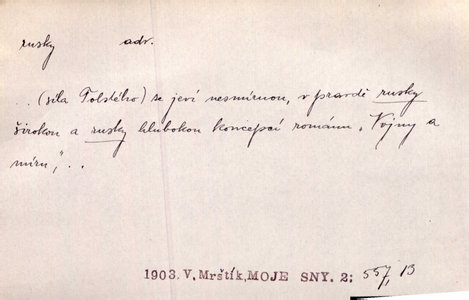 rusky adv.
.. (síla Tolstého) se jeví nesmírnou, v pravdě rusky
širokou a rusky hlubokou koncepcí románu „Vojny a
míru," ..
1903. V. Mrštík, MOJE SNY. 2; 557, 13